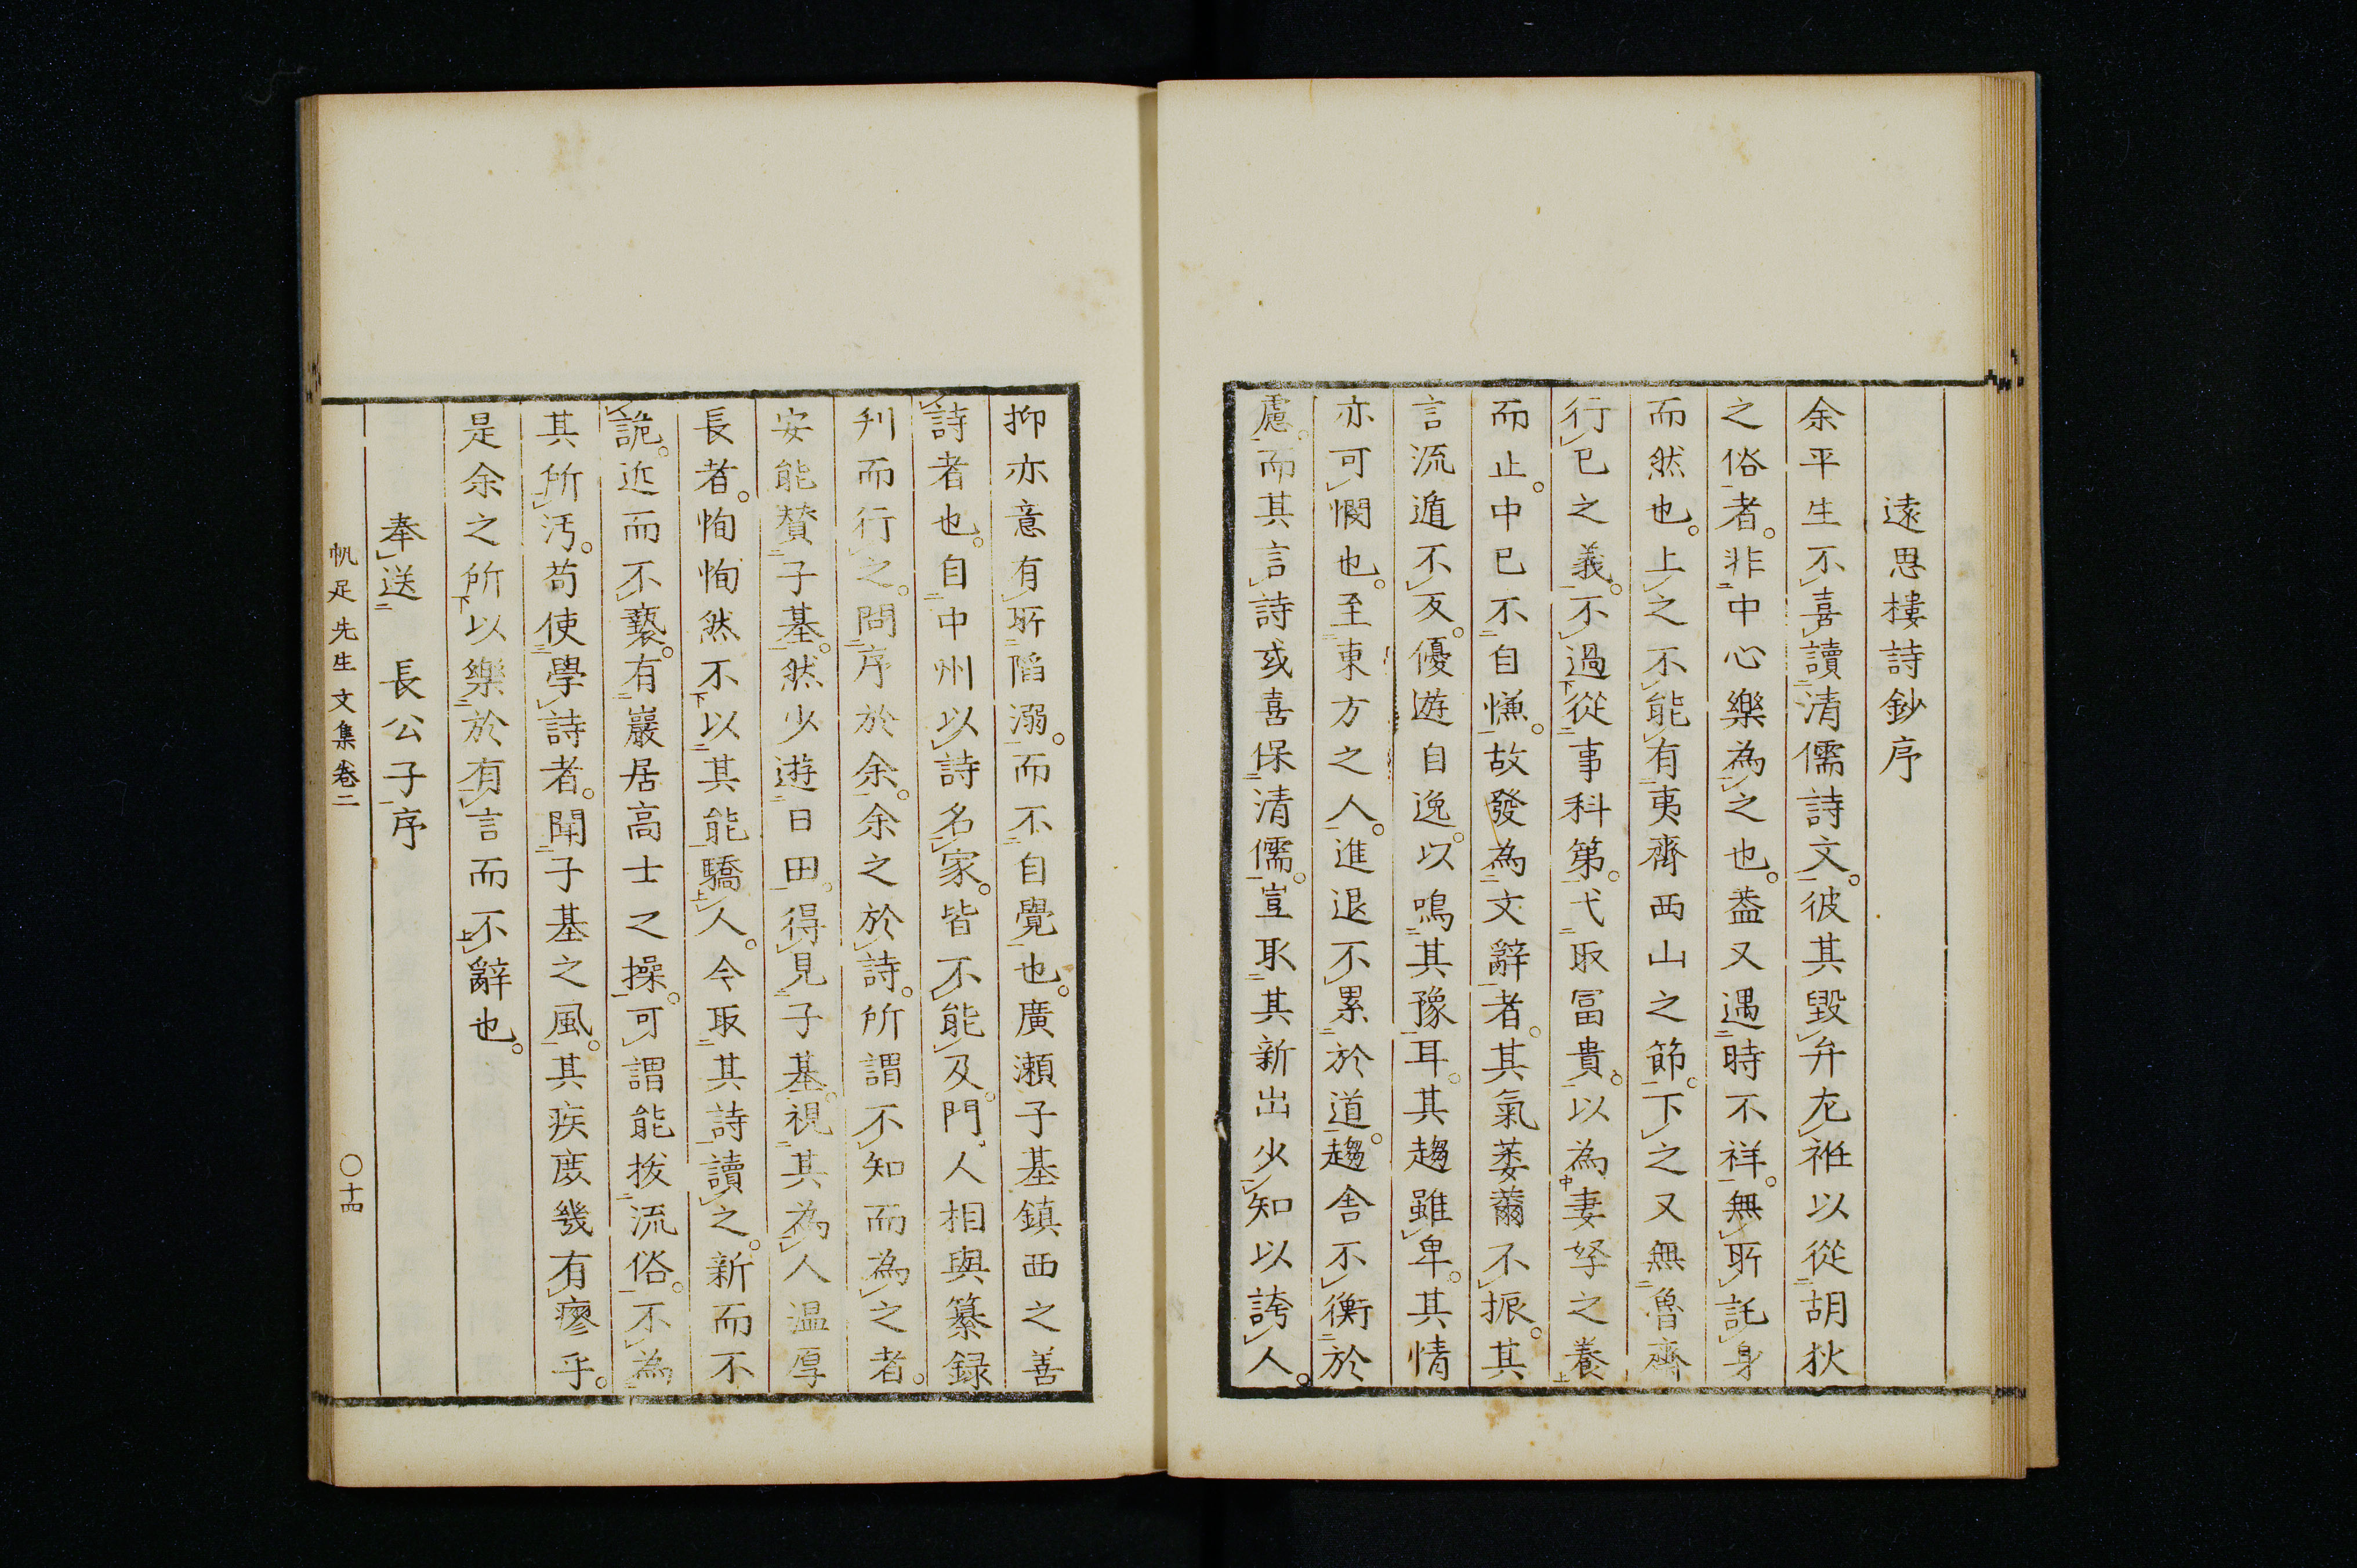 遠思樓詩鈔序
余平生不喜讀清儒詩文。彼其毀弁尨袵以從胡狄
之俗者。非中心樂為之也。蓋又遇時不祥。無所託身
而然也。上之不能有夷齊西山之節。下之又無魯齊
行已之義。不過從事科第。弋取冨貴。以為妻孥之養
而止。中已不自慊。故發為文辭者。其氣萎薾不振。其
言流遁不反。優遊自逸。以鳴其豫耳。其趨雖卑。其情
亦可憫也。至東方之人。進退不累於道。趨舍不衡於
慮。而其言詩或喜保清儒。豈取其新出少知以誇人。
抑亦意有所陷溺。而不自覺也。廣瀬子基鎮西之善
詩者也。自中州以詩名家。皆不能及。門人相與纂録
刋而行之。問序於余。余之於詩。所謂不知而為之者。
安能贊子基。然少遊日田。得見子基。視其為人温厚
長者。恂恂然不以其能驕人。今取其詩讀之。新而不
詭。近而不褻。有巖居高士之操。可謂能拔流俗。不為
其所汚。苟使學詩者。聞子基之風。其疾庻幾有瘳乎。
是余之所以樂於有言而不辭也。
奉送　長公子序
帆足先生文集卷二　〇十四